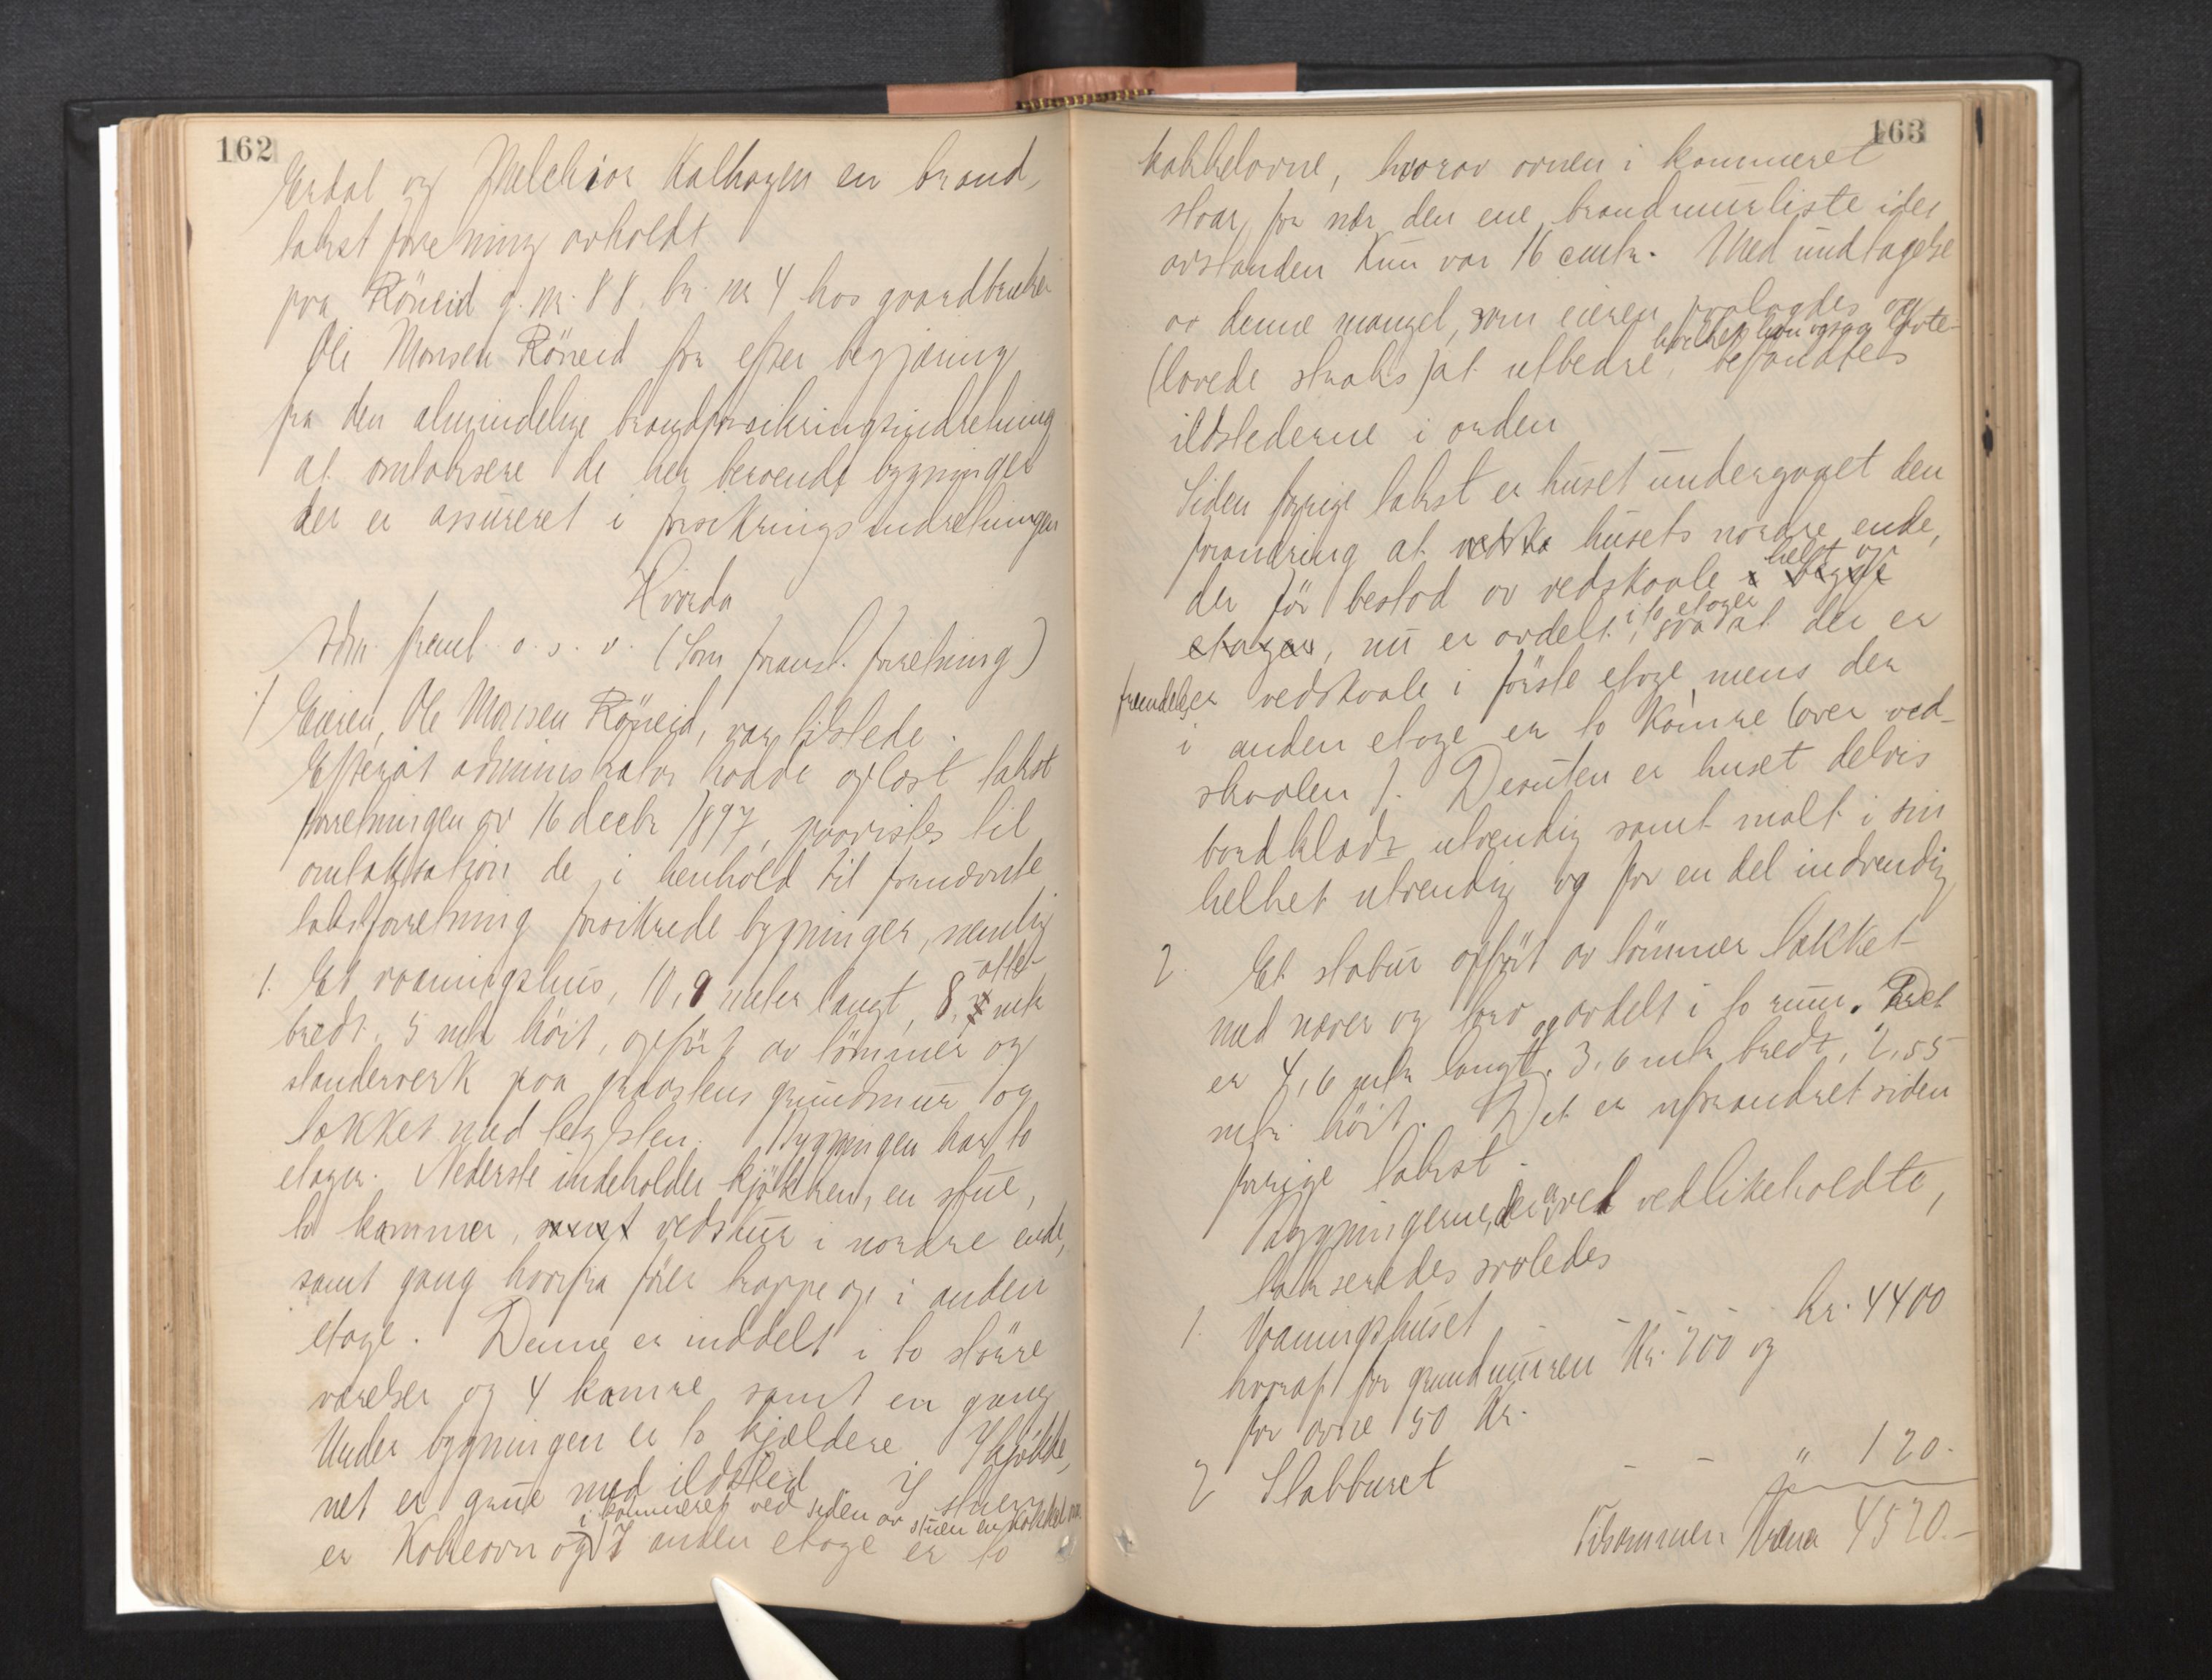 162
Erdal og Melchior Kalhagen en brand-
takst forretning avholdt
paa Röneid g. nr. 88 br. nr 4 hos gaardbruker
Ole Monsen Röneid for efter begjæring
fra den almindelige brandforsikringsindretning
at omtaksere de her beroende bygninger
der er assureret i forsikringsindretningen
Hvorda
Adm. freml. o. s. v. (Som foranst. forretning)
Eieren, Ole Monsen Röneid, var tilstede.
Efterat administrator hadde oplæst takst
forretningen av 16 decbr 1897, paavistes til
omtaksation de i henhold til fornævnte
takstforretning forsikrede bygninger, nemlig
1. Et vaaningshus, 10,9 meter langt, 8, otte mtr
bredt, 5 mtr höit, opfört av tömmer og
standerverk paa graastens grundmur og
tækket med leg sten. Bygningen har to
etager. Nederste indeholder kjökken, en stue,
to kammer, samt vedskur i nordre ende,
samt gang hvorfra förer trappe op i anden
etage. Denne er inddelt i to större
værelser og 4 kamre samt en gang
Under bygningen er to kjældere I kjökke,
net er grue med ildsted I stuen
i kammeret ved siden av stuen en kakkelovn.
er Kokeovn og I anden etage er to
163
kakkelovne, hvorav ovnen i kammeret
staar for nær den ene brandmurliste idet
avstanden Kun var 16 cmtr. Med undtagelse
av denne mangel, som eieren paalagdes og
hvilket han ogsaa lovte
(lovede straks) at utbedre, befandtes
ildstederne i orden
Siden forrige takst er huset undergaaet den
forandring at vedska husets nordre ende,
der för bestod av vedskaale helt op
etager, nu er avdelt i to etager, saa at der er
fremdeles vedskaale i förste etage, mens der
i anden etage er to Kamre (over ved-
skaalen). Desuten er huset delvis
bordklædt utvendig samt malt i sin
helhet utvendig og for en del indvendig
2. Et stabur opfört av tömmer tækket
med næver og torv og avdelt i to rum. Det
er 4,6 mtr langt, 3,6 mtr bredt, 2,55
mtr. höit. Det er uforandret siden
forrige takst.
Bygningerne, der er vel vedlikeholdte,
takseredes saaledes
1. Vaaningshuset - - - kr. 4400
hvoraf for grundmuren Kr. 200 og
for ovne 50 Kr.
2 Stabburet - - " 120.-
Tilsammen Kroner 4520.-